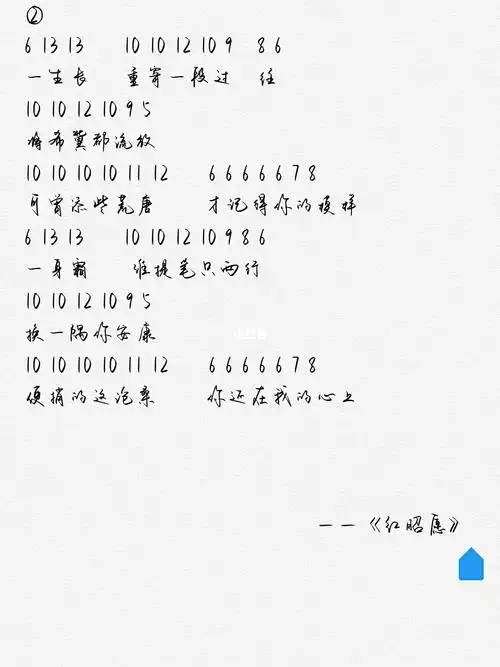 ②
6 13 13 10 10 12 10 9 8 6
一生长 重寄一段过 往
10 10 12 10 9 5
将希冀都流放
10 10 10 10 11 12 6 6 6 6 6 7 8
可曾添些荒唐 才记得你的模样
6 13 13 10 10 12 10 9 8 6
一身霜 谁提笔只两行
10 10 12 10 9 5
换一隅你安康
10 10 10 10 11 12 6 6 6 6 6 7 8
便捎的这沧桑 你还在我的心上
——《红昭愿》